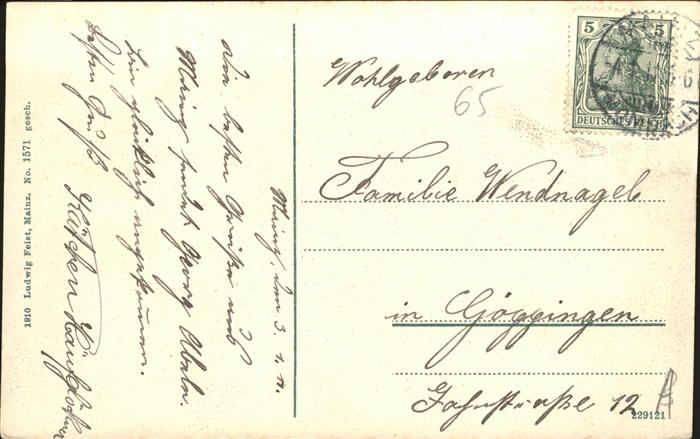 1910 Ludwig Feist, Mainz. No. 1571 gesch.
Mainz, den 3.
Die besten Grüße aus
Mainz sendet Georg
bin glücklich angekommen.
Besten Gruß
Käthchen
5 5
DEUTSCHES REICH
Wohlgeboren
65
Familie Wendnagel
in Göggingen
Jahnstraße 12
229121